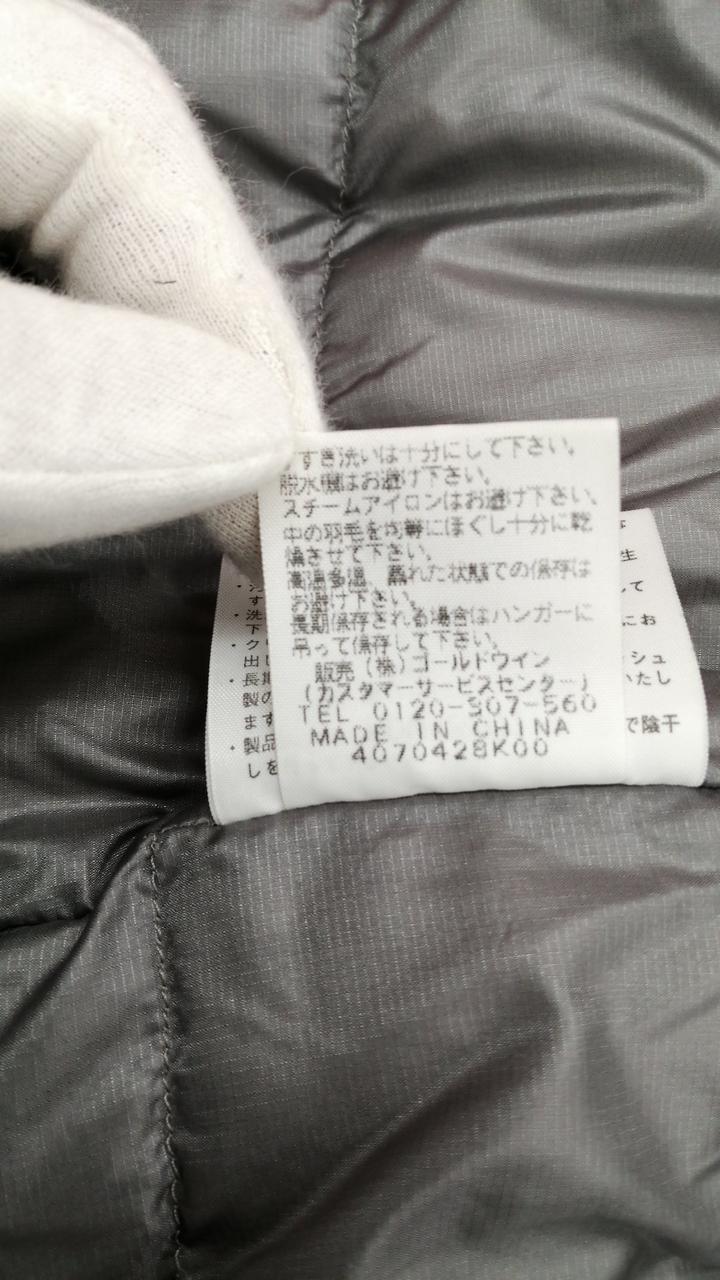 すすき洗いは十分にして下さい。
脱水機はお避け下さい。
スチームアイロンはお避け下さい。
中の羽毛を均等にほぐし十分に乾
燥させて下さい。
高温多湿、蒸れた状態での保存は
お避け下さい。
長期保存される場合はハンガーに
吊って保存して下さい。
販売（株）ゴールドウイン
（カスタマーサービスセンター）
TEL 0120-307-560
MADE IN CHINA
4070428K00
生
す
して
・洗
にお
下
・ク
ッシュ
出し
・長期
いたし
製の
ます
で陰干
・製品
しを